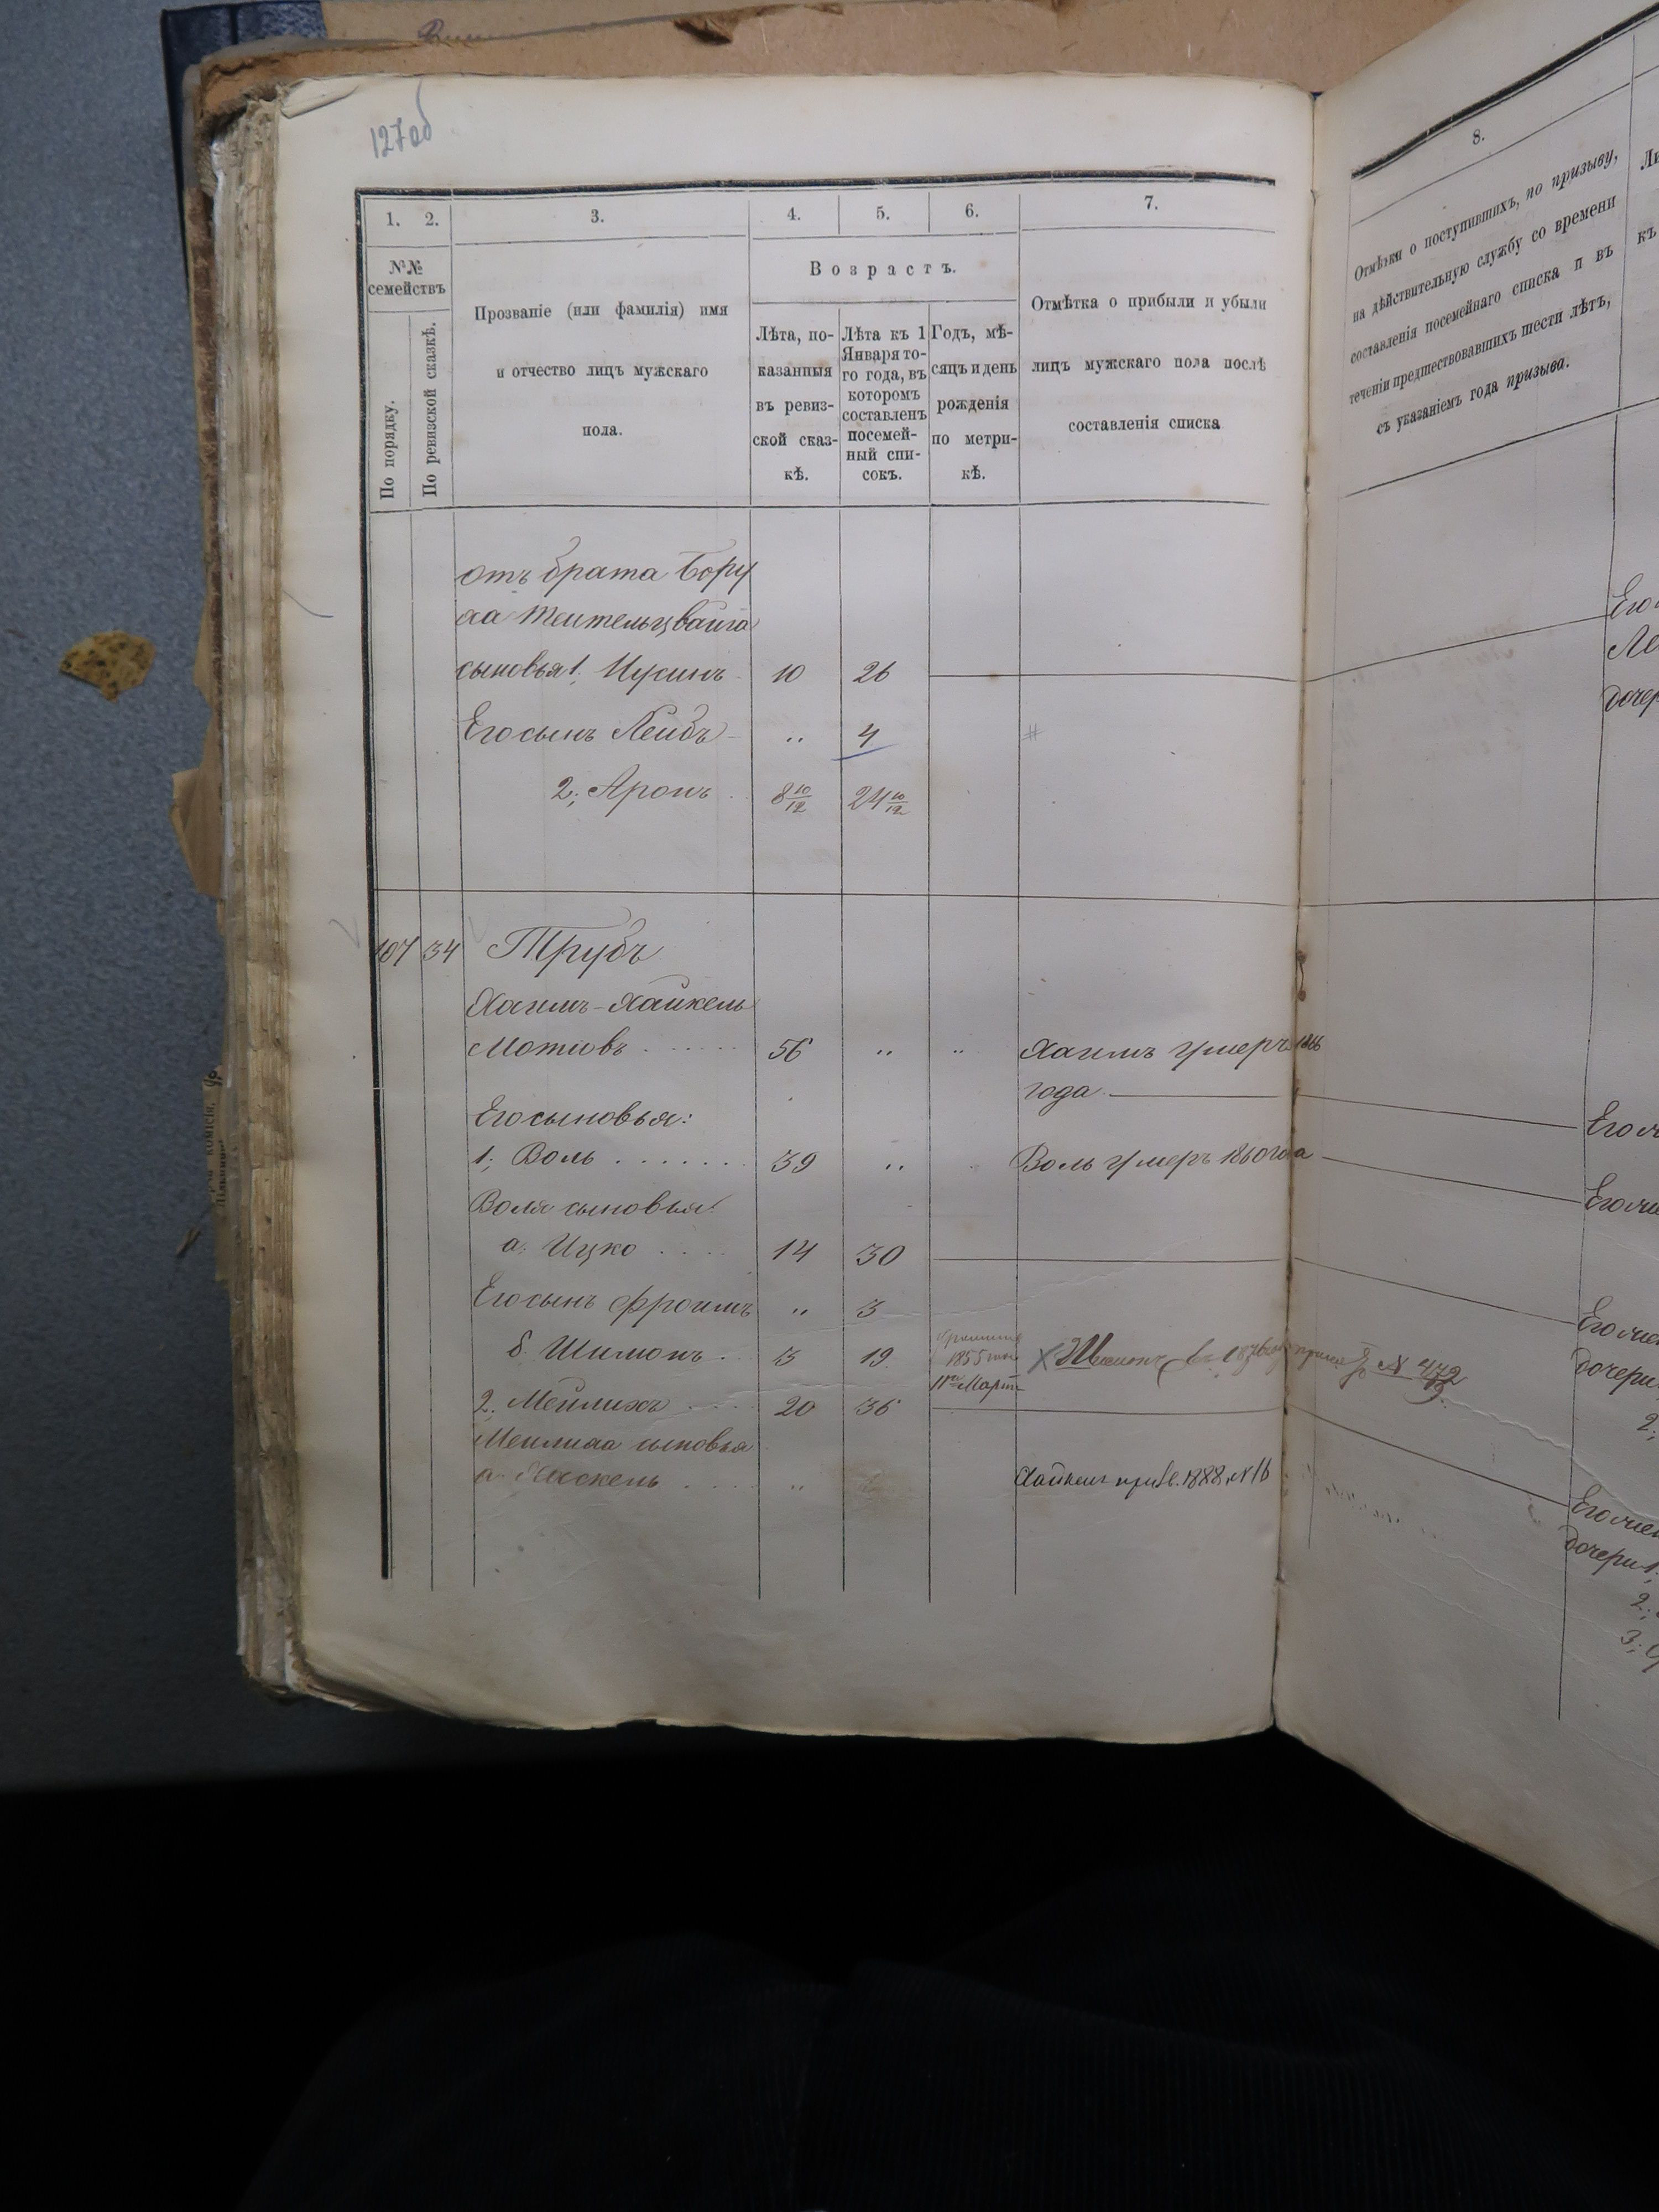 127 об
1. 2. 3. 4. 5. 6. 7.
№№ семействъ
По порядку.
По ревизской сказкѣ.
Прозваніе (или фамилія) имя
и отчество лицъ мужскаго
пола.
Возрастъ.
Лѣта, по-
казанныя
въ ревиз-
ской сказ-
кѣ.
Лѣта къ 1
Января то-
го года, въ
которомъ
составленъ
посемей-
ный спи-
сокъ.
Годъ, мѣ-
сяцъ и день
рожденія
по метри-
кѣ.
Отмѣтка о прибыли и убыли
лицъ мужскаго пола послѣ
составленія списка
отъ брата Бору
ха Тейтельцвайга
сыновья 1; Нусинъ 10 26
Его сынъ Лейбъ " 4
2; Аронъ 8 10/12 24 10/12
107 34 Трубъ
Хаимъ-Хайкель
Мотіовъ 56 " " Хаимъ умеръ 1866
года
Его сыновья:
1; Воль 39 " Воль умеръ 1860 года
Воля сыновья:
а; Ицко 14 30
Его сынъ Фроимъ " 3
б. Шимонъ 3 19 1855 Марта Шимонъ № 472
2. Мейлихъ 20 36
Мейлиха сыновья
а. Хаскель " Хайкель 1888 № 16
8.
Отмѣтки о поступившихъ, по призыву,
на дѣйствительную службу со времени
составленія посемейнаго списка п въ
теченіи предшествовавшихъ шести лѣтъ,
съ указаніемъ года призыва.